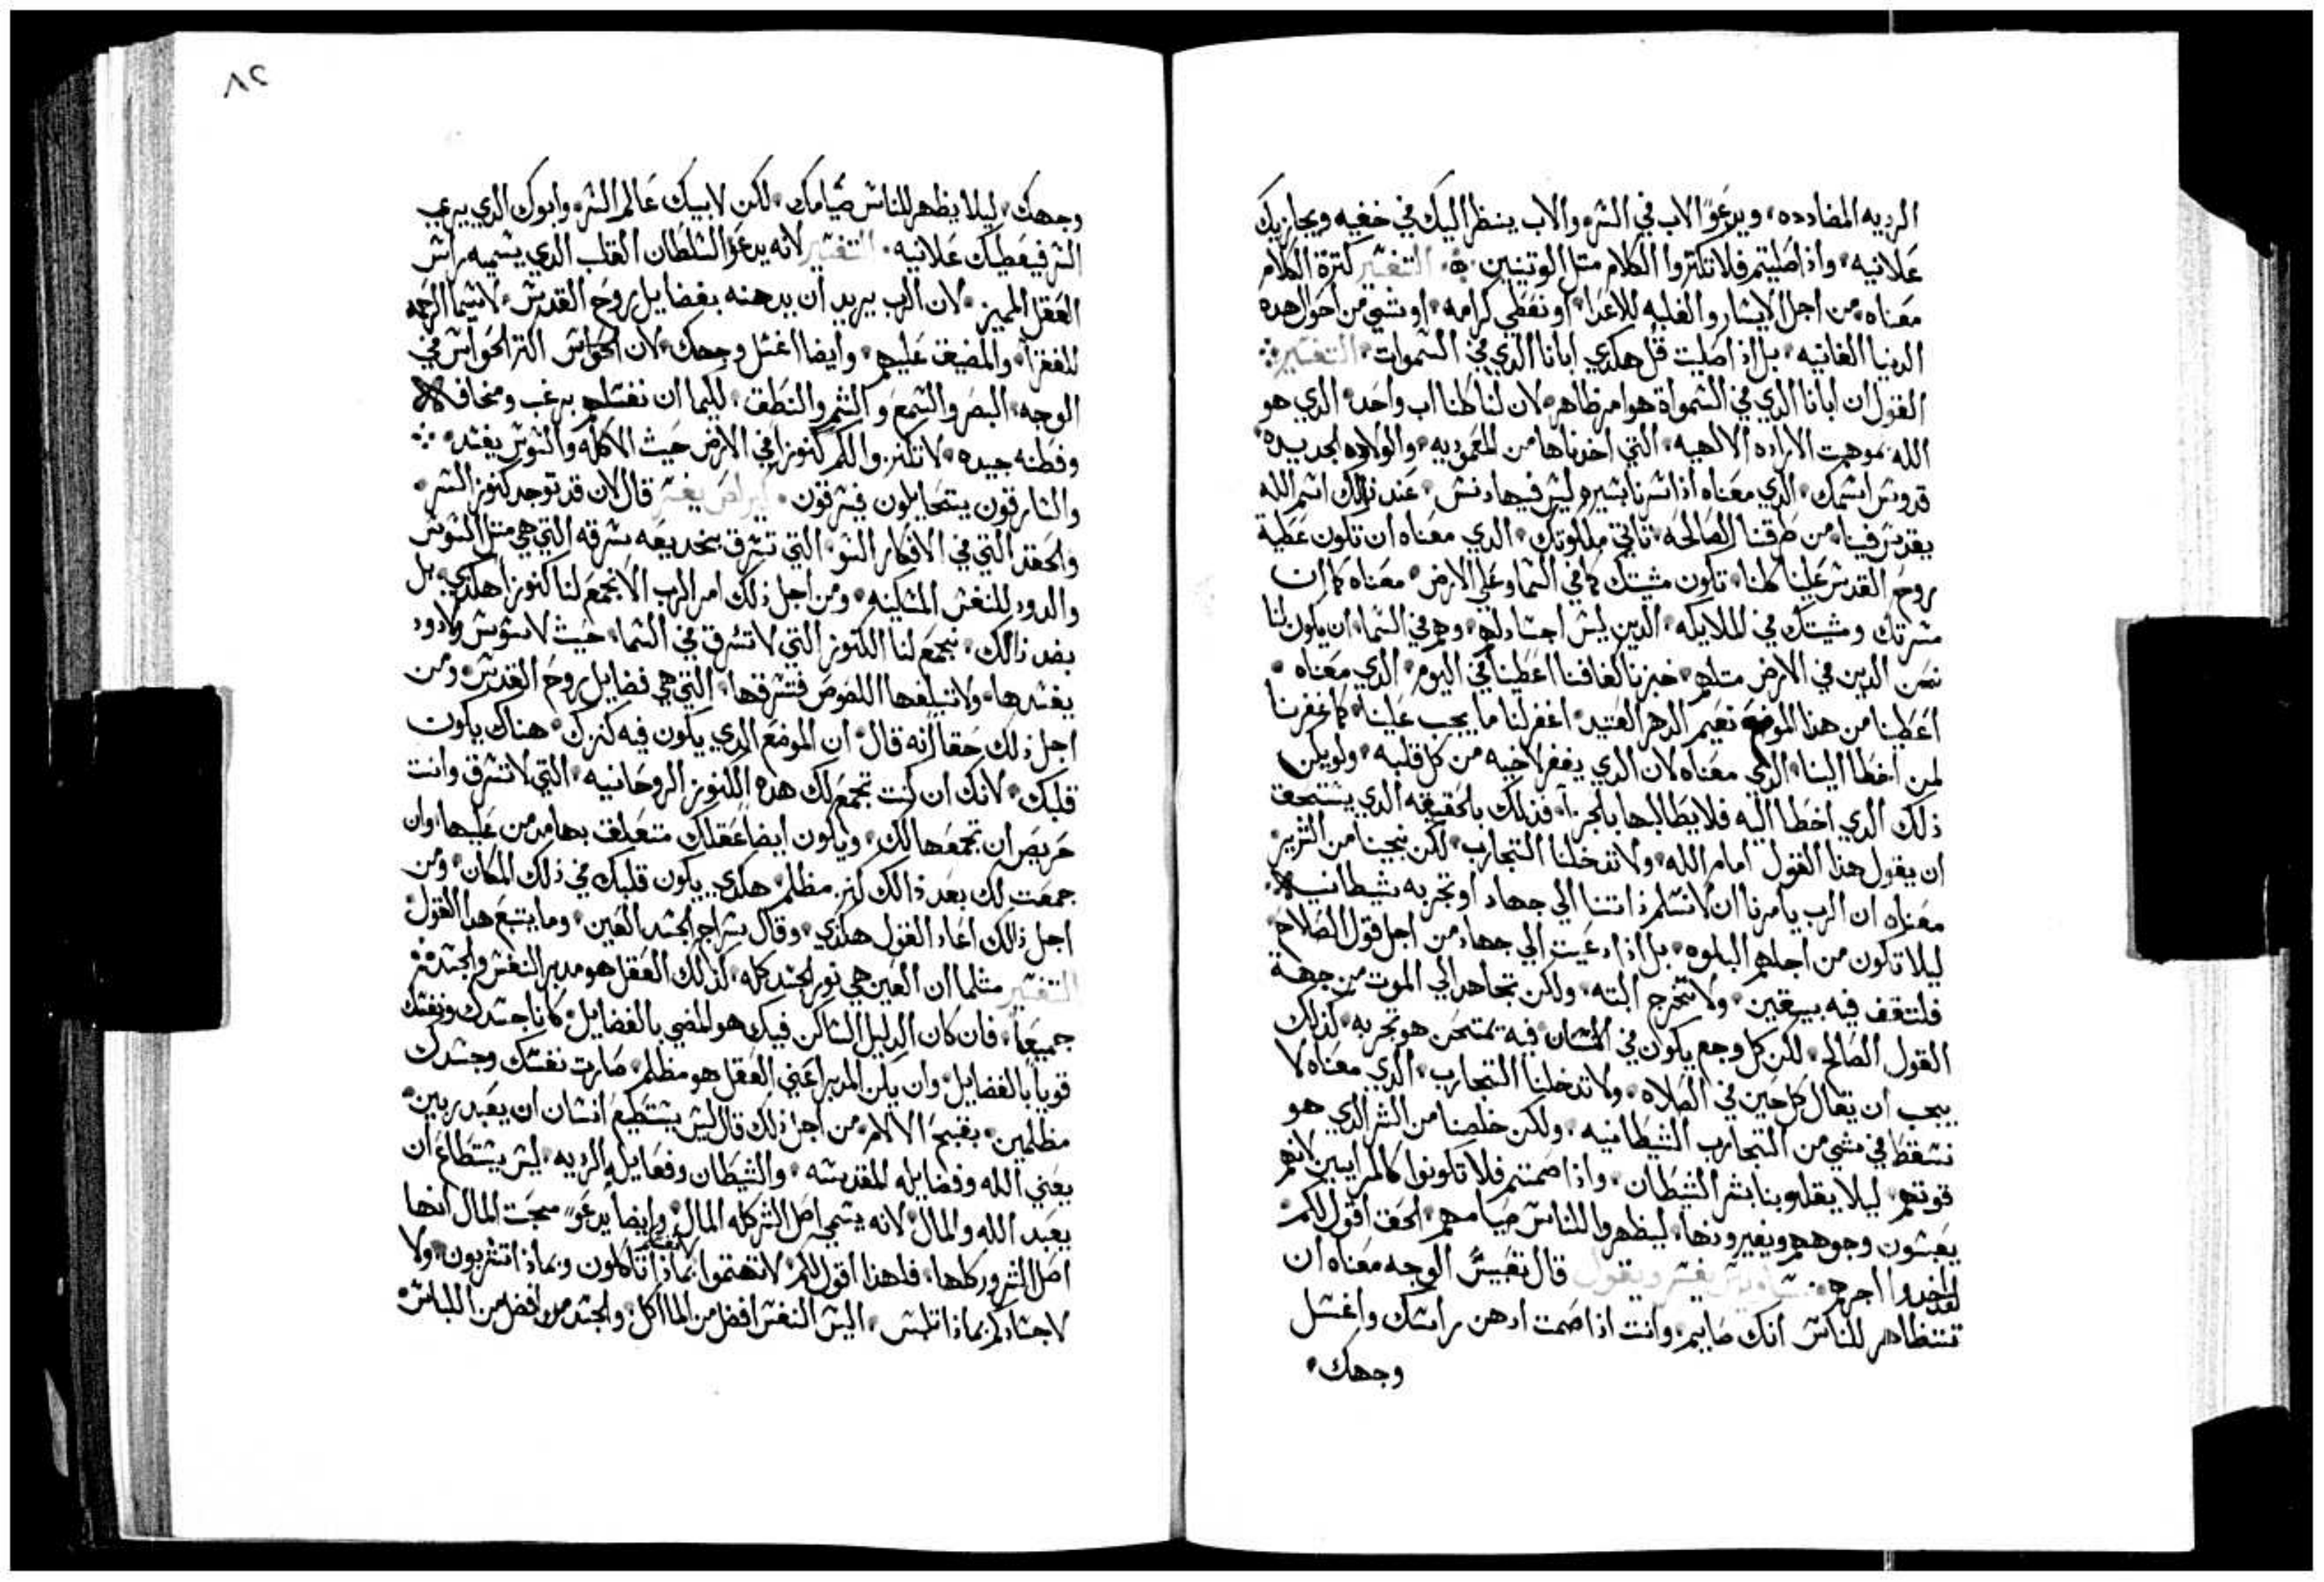 الرديه المضادده، ويدعو الاب في السر، والاب ينظر اليك في خفيه ويجازيك
علانيه، واذا صليتم فلا تكتروا الكلام متل الوتنيين. التفسير كترة الكلام
معناه، من اجل الايسار والغلبه للاعدا، او نعطي كرامه، او شي من احوال هده
الدنيا الفانيه، بل اذا صليت قل هكدي ابانا الدي في السموات، التفسير
القول ان ابانا الدي في السمواة هو امر ظاهر، لان لنا كلنا اب واحد، الدي هو
الله بموهبت الاراده الالهيه، التي اخدناها من المعموديه، والولاده الجديده،
قدوس اسمك، الدي معناه اذا سرنا بسيره ليس فيها دنس، عند ذالك اسم الله
يقدس فينا، من طرقنا الصالحه، تاتي ملكوتك، الدي معناه ان تكون عطية
روح القدس علينا كلنا، تكون مشيتك كما في السما وعلي الارض، معناه كما ان
مسرتك ومشيتك في الملايكه، الدين ليس اجساد لهم، وهم في السما، ان يكون لنا
نحن الدين في الارض متلهم، خبزنا كفافنا اعطينا في اليوم، الدي معناه
اعطينا من هدا الموضع نعيم الدهر العتيد، اغفر لنا ما يجب علينا، كما غفرنا
لمن اخطا الينا، الدي معناه لان الدي يغفر لاخيه من كل قلبه، ولو يكن
ذلك الدي اخطا اليه فلا يطالبها بالجزا، فدلك بالحقيقه الدي يستحق
ان يقول هدا القول امام الله، ولا تدخلنا التجارب، لكن نجينا من الشرير
معناه ان الرب يامرنا ان لا نسلم ذاتنا الي جهاد او تجربه شيطانيه
ليلا تكون من اجلهم البلوه، بل اذا دعيت الي جهاد من اجل قول الصلاح
فلتقف فيه بيقين، ولا تخرج البته، ولكن تجاهد الي الموت من جهة
القول الصالح، لكن كل وجع يكون في الانسان فيه يمتحن هو تجربه، كذلك
يجب ان يقال كل حين في الصلاه، ولا تدخلنا التجارب، الدي معناه لا
نسقط في شي من التجارب الشيطانيه، ولكن خلصنا من الشر الدي هو
قوتهم، ليلا يقلوبنا بشر الشيطان، واذا صمتم فلا تكونوا كالمراييين لانهم
يعبسون وجوههم ويغيرونها، ليظهروا للناس صيامهم، الحق اقول لكم
لقد اخدوا اجرهم، ساويرس يفسر ويقول قال تعبيس الوجه معناه ان
تتظاهر للناس انك صايم، وانت اذا صمت ادهن راسك واغسل
وجهك،
٨٢
وجهك، ليلا يظهر للناس صيامك، لكن لابيك عالم السر، وابوك الدي يري
السر فيعطيك علانيه، التفسير لانه يدعو السلطان القلب الدي يسميه راس
العقل المميز، لان الرب يريد ان يدهنه بفضايل روح القدس، لاسيما الرحمه
للفقرا، والمضيق عليهم، وايضا اغسل وجهك، لان الحواس اكتر الحواس في
الوجه، البصر والسمع والشم والنطق، لكيما ان نغسلهم برغب ومخافه
وفطنه جيده، لا تكنزوا لكم كنوزا في الارض حيث الاكله والسوس يفسد
والسارقون يتحايلون فيسرقون، كيرلص يفسر قال لان قد توجد كنوز الشر،
والحقد التي في الافكار السو، التي تسرق بخديعه سرقه التي هي متل السوس
والدود للنفس المسكينه، ومن اجل ذلك امر الرب الا نجمع لنا كنوزا هكدي، بل
بضد ذالك، نجمع لنا الكنوز التي لا تسرق في السما، حيث لا سوس ولا دود
يفسدها، ولا تبلغها اللصوص فتسرقها، التي هي فضايل روح القدس، ومن
اجل ذلك حقا انه قال، ان الموضع الدي يكون فيه كنزك، هناك يكون
قلبك، لانك ان كنت تجمع لك هده الكنوز الروحانيه، التي لا تسرق وانت
حريص ان تجمعها لك، ويكون ايضا عقلك متعلق بها مدمن عليها، وان
جمعت لك بعد ذالك كنز مظلم، هكدي يكون قلبك في ذلك المكان، ومن
اجل ذالك اعاد القول هكدي، وقال سراج الجسد العين، وما يتبع هدا القول
التفسير متلما ان العين هي نور الجسد كله، كذلك العقل هو مدبر النفس والجسد
جميعا، فان كان الدليل الساكن فيك هو المضي بالفضايل، كانا جسدك ونفسك
قويا بالفضايل، وان يكن المدبر اعني العقل هو مظلم، صارت نفسك وجسدك
مظلمين، بقبح الالام، من اجل ذلك قال ليس يستطيع انسان ان يعبد ربين،
يعني الله وفضايله المقدسه، والشيطان وفعايله الرديه، ليس يستطاع ان
يعبد الله والمال، لانه يسمي اصل الشر كله المال، وايضا يدعو محبت المال انها
اصل الشرور كلها، فلهدا اقول لكم لا تهتموا لانفسكم بماذا تاكلون وبماذا تشربون، ولا
لاجسادكم بماذا تلبس، اليس النفس افضل من الماكل، والجسد افضل من اللباس